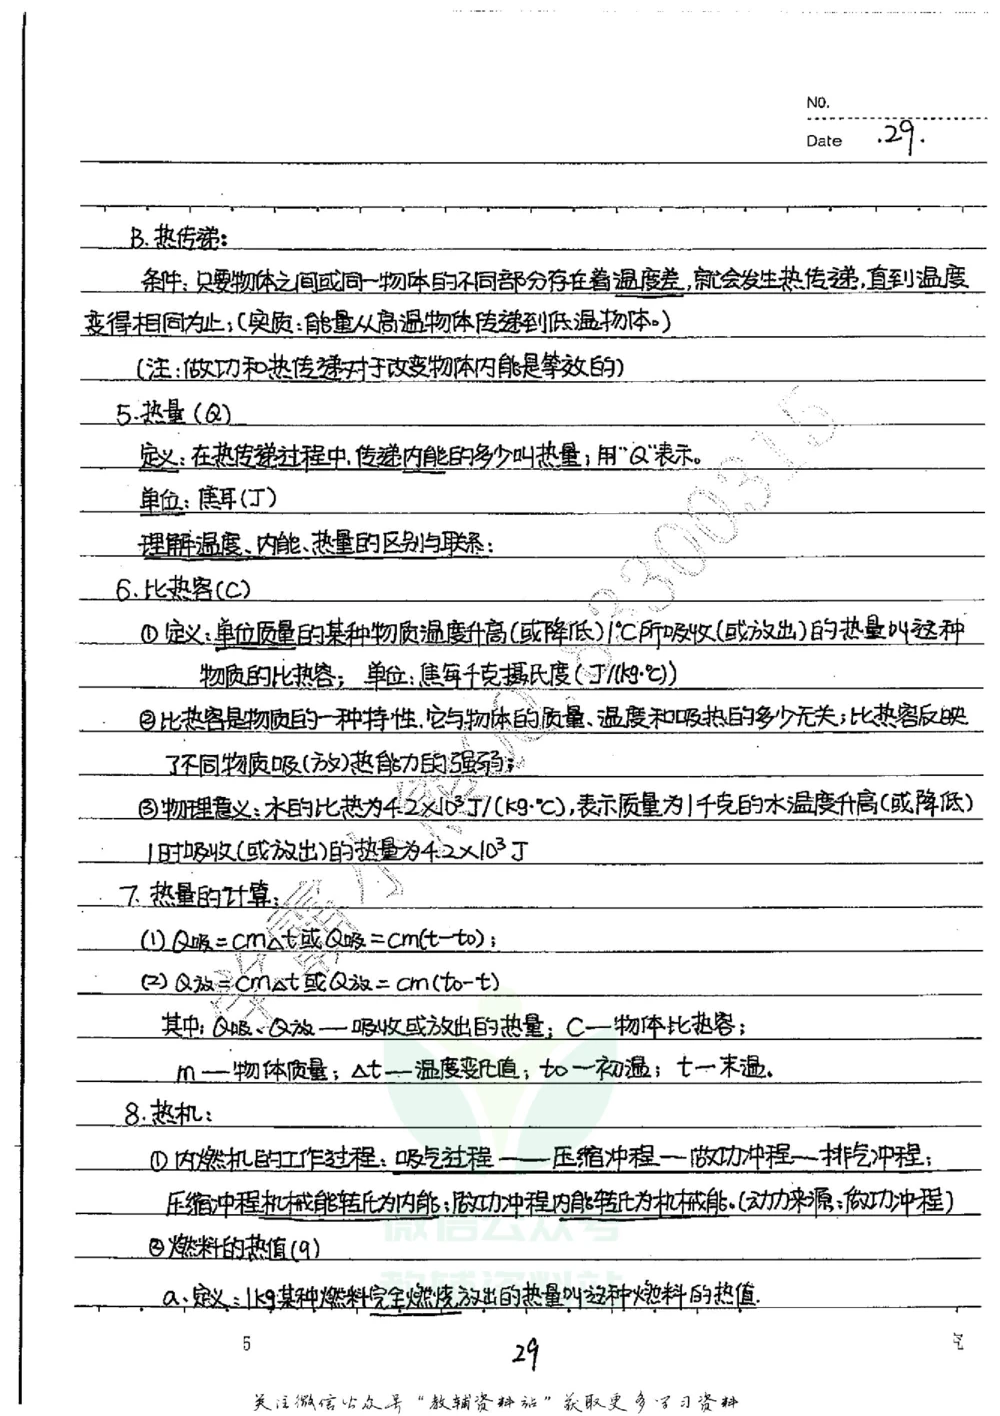 No.
Date .29.
B.热传递:
条件:只要物体之间或同一物体的不同部分存在着温度差,就会发生热传递,直到温度
变得相同为止;(实质:能量从高温物体传递到低温物体。)
(注:做功和热传递对于改变物体内能是等效的)
5.热量(Q)
定义:在热传递过程中,传递内能的多少叫热量;用“Q”表示。
单位:焦耳(J)
理解温度、内能、热量的区别与联系:
6.比热容(C)
①定义:单位质量的某种物质温度升高(或降低)1℃所吸收(或放出)的热量叫这种
物质的比热容; 单位:焦每千克摄氏度(J/(kg·℃))
②比热容是物质的一种特性,它与物体的质量、温度和吸热的多少无关;比热容反映
了不同物质吸(放)热能力的强弱;
③物理意义:水的比热为4.2×10³J/(kg·℃),表示质量为1千克的水温度升高(或降低)
1时吸收(或放出)的热量为4.2×10³J
7.热量的计算:
(1)Q吸=cm△t或Q吸=cm(t-t0);
(2)Q放=cm△t或Q放=cm(t0-t)
其中:Q吸、Q放—吸收或放出的热量;C—物体比热容;
m—物体质量;△t—温度变化值;t0—初温;t—末温。
8.热机:
①内燃机的工作过程:吸气过程——压缩冲程—做功冲程—排气冲程;
压缩冲程机械能转化为内能;做功冲程内能转化为机械能。(动力来源:做功冲程)
②燃料的热值(q)
a.定义:1kg某种燃料完全燃烧放出的热量叫这种燃料的热值.
5
29
关注微信公众号“教辅资料站”获取更多学习资料
微信公众号
教辅资料站